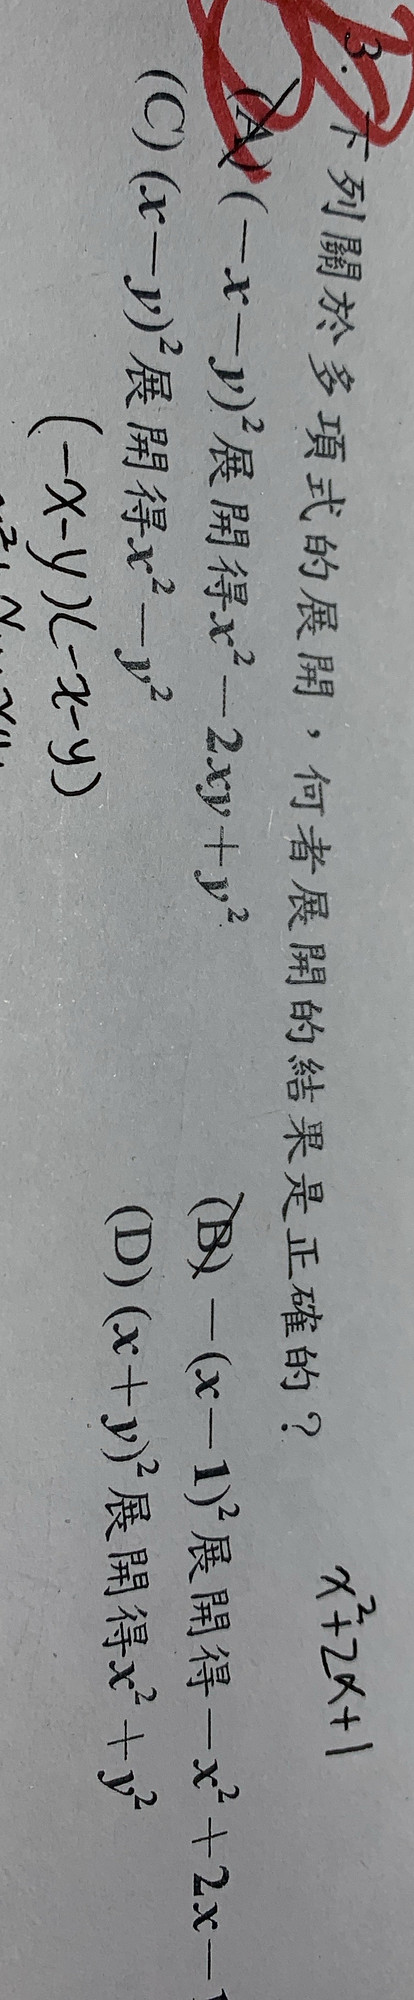 3. 下列關於多項式的展開，何者展開的結果是正確的？
x²+2x+1
(A) (−x−y)²展開得x²−2xy+y² (B) −(x−1)²展開得−x²+2x−1
(C) (x−y)²展開得x²−y² (D) (x+y)²展開得x²+y²
(-x-y)(-x-y)